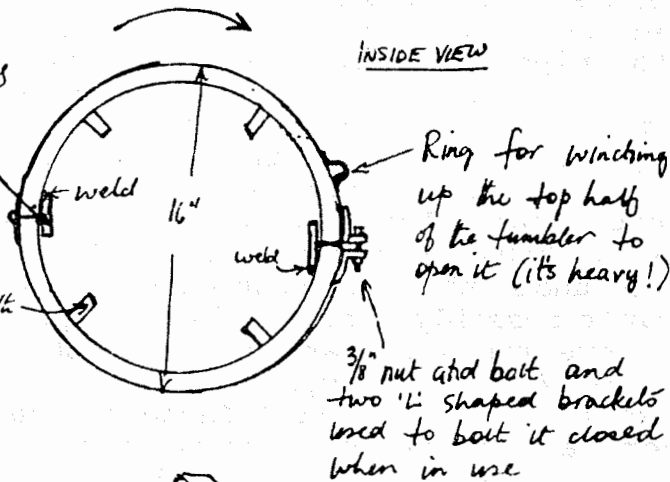 INSIDE VIEW
weld
16"
weld
Ring for winching
up the top half
of the tumbler to
open it (it's heavy!)
3/8" nut and bolt and
two 'L' shaped brackets
used to bolt it closed
when in use